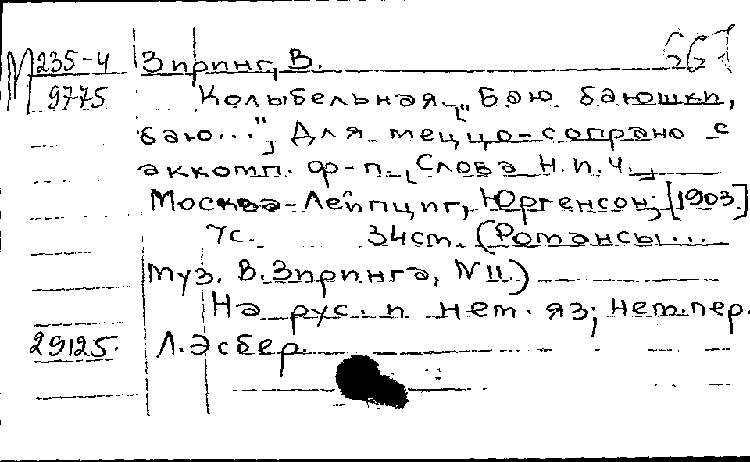 М 235-4 Зиринг, В. 561
9775 Колыбельная „Баю баюшки,
баю..."„ Для меццо-сопрано с
аккомп. ф-п. Слова Н.П.Ч.
Москва-Лейпциг, Юргенсон; [1903.]
7с. 34см. (Романсы...
Муз. В. Зиринга, №11.)
На рус. и нем. яз; Нем.пер.
29125. Л. Эсбер.